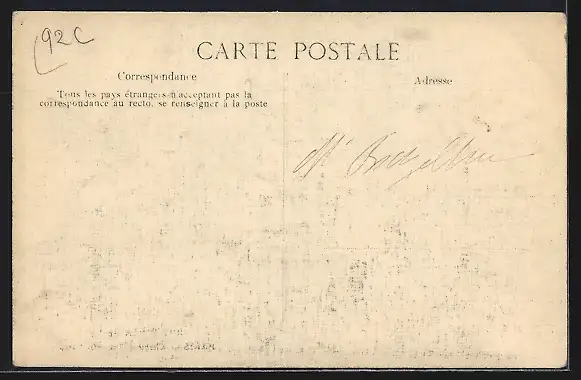 92C
CARTE POSTALE
Correspondance
Adresse
Tous les pays étrangers n'acceptant pas la
correspondance au recto, se renseigner à la poste